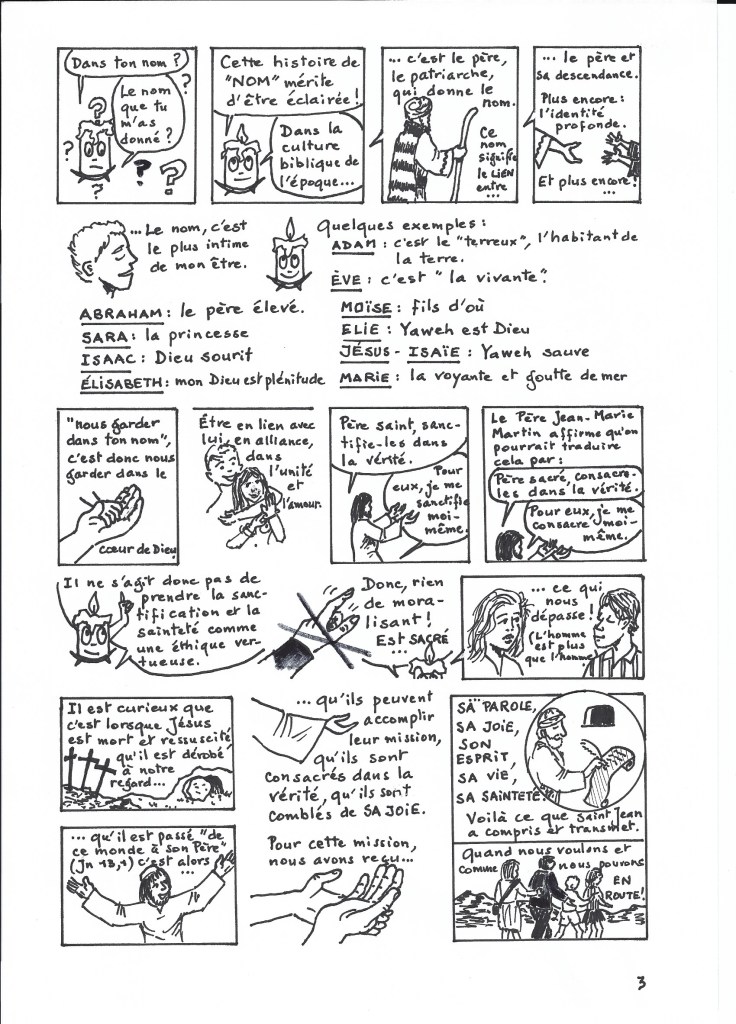 Dans ton nom ?
Le nom
que tu
m'as
donné ?
?
?
?
?
?
?
?
Cette histoire de
"NOM" mérite
d'être éclairée !
Dans la
culture
biblique de
l'époque...
... c'est le père,
le patriarche,
qui donne le
nom.
Ce
nom
signifie
le LIEN
entre
...
... le père et
sa descendance.
Plus encore :
l'identité
profonde.
Et plus encore !
...
... Le nom, c'est
le plus intime
de mon être.
Quelques exemples :
ADAM : c'est le "terreux", l'habitant de
la terre.
ÈVE : c'est "la vivante".
ABRAHAM : le père élevé.
SARA : la princesse
ISAAC : Dieu sourit
ÉLISABETH : mon Dieu est plénitude
MOÏSE : fils d'où
ELIE : Yaweh est Dieu
JÉSUS - ISAÏE : Yaweh sauve
MARIE : la voyante et goutte de mer
"nous garder
dans ton nom",
c'est donc nous
garder dans le
cœur de Dieu
Être en lien avec
lui, en alliance,
dans
l'unité
et
l'amour.
Père saint, sanc-
tifie-les dans
la vérité.
Pour
eux, je me
sanctifie
moi-
même.
Le Père Jean-Marie
Martin affirme qu'on
pourrait traduire
cela par :
Père sacré, consacre-
les dans la vérité.
Pour eux, je me
consacre moi-
même.
Il ne s'agit donc pas de
prendre la sanc-
tification et la
sainteté comme
une éthique ver-
tueuse.
Donc, rien
de mora-
lisant !
EST SACRÉ
...
... ce qui
nous
dépasse !
(L'homme
est plus
que l'homme)
Il est curieux que
c'est lorsque Jésus
est mort et ressuscité,
qu'il est dérobé
à notre
regard...
... qu'il est passé "de
ce monde à son Père"
(Jn 13,1) c'est alors
...
... qu'ils peuvent
accomplir
leur mission,
qu'ils sont
consacrés dans la
vérité, qu'ils sont
comblés de SA JOIE.
Pour cette mission,
nous avons reçu...
SA PAROLE,
SA JOIE,
SON
ESPRIT,
SA VIE,
SA SAINTETÉ.
Voilà ce que Saint Jean
a compris et transmet.
Quand nous voulons et
comme nous pouvons
EN
ROUTE !
3